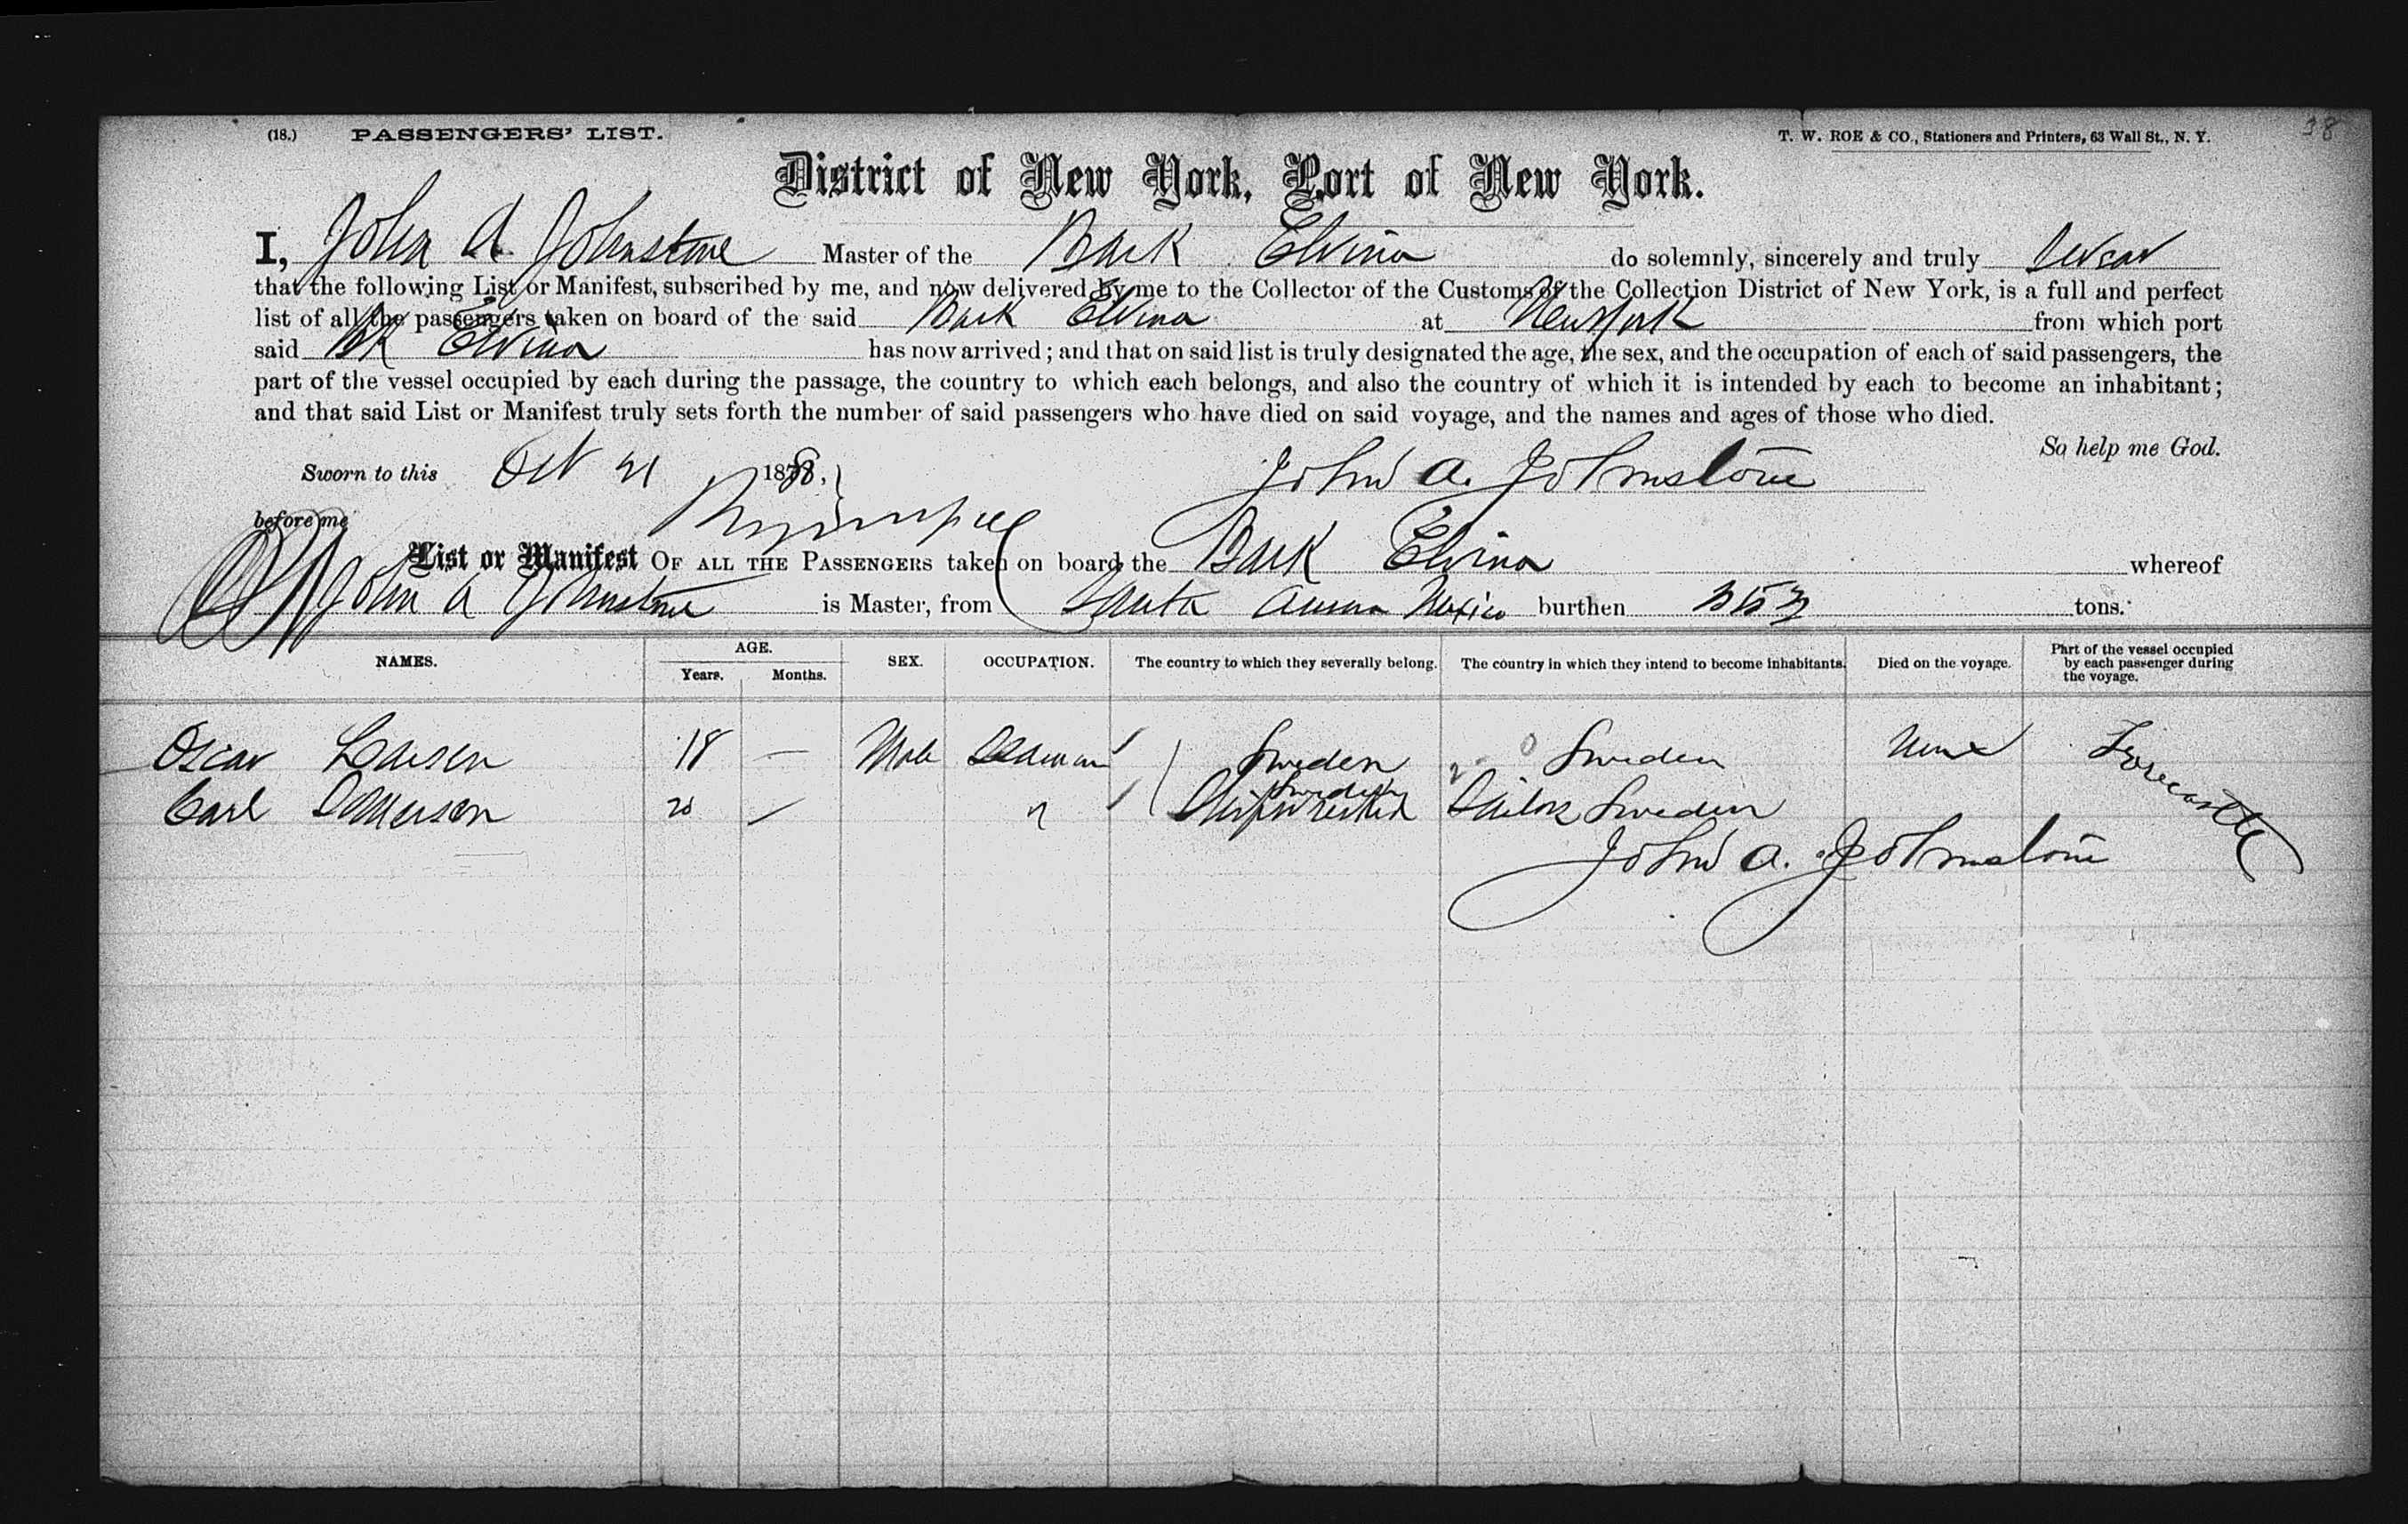 (18.) PASSENGERS' LIST. T. W. ROE & CO., Stationers and Printers, 63 Wall St., N. Y. 38
District of New York, Port of New York.
I, John A. Johnstone Master of the Bark Elvina do solemnly, sincerely and truly swear
that the following List or Manifest, subscribed by me, and now delivered by me to the Collector of the Customs of the Collection District of New York, is a full and perfect
list of all the passengers taken on board of the said Bark Elvina at New York from which port
said Bk Elvina has now arrived; and that on said list is truly designated the age, the sex, and the occupation of each of said passengers, the
part of the vessel occupied by each during the passage, the country to which each belongs, and also the country of which it is intended by each to become an inhabitant;
and that said List or Manifest truly sets forth the number of said passengers who have died on said voyage, and the names and ages of those who died.
So help me God.
Sworn to this Oct 21 188 John A. Johnstone
before me
List or Manifest OF ALL THE PASSENGERS taken on board the Bark Elvina whereof
John A Johnstone is Master, from Santa Mexico burthen tons.
NAMES. AGE. Years. Months. SEX. OCCUPATION. The country to which they severally belong. The country in which they intend to become inhabitants. Died on the voyage. Part of the vessel occupied by each passenger during the voyage.
Oscar Larsen 18 — Male Seaman Sweden Sweden None Forecastle
Carl 20 — " Sweden Shipwrecked Sailors Sweden
John A. Johnstone